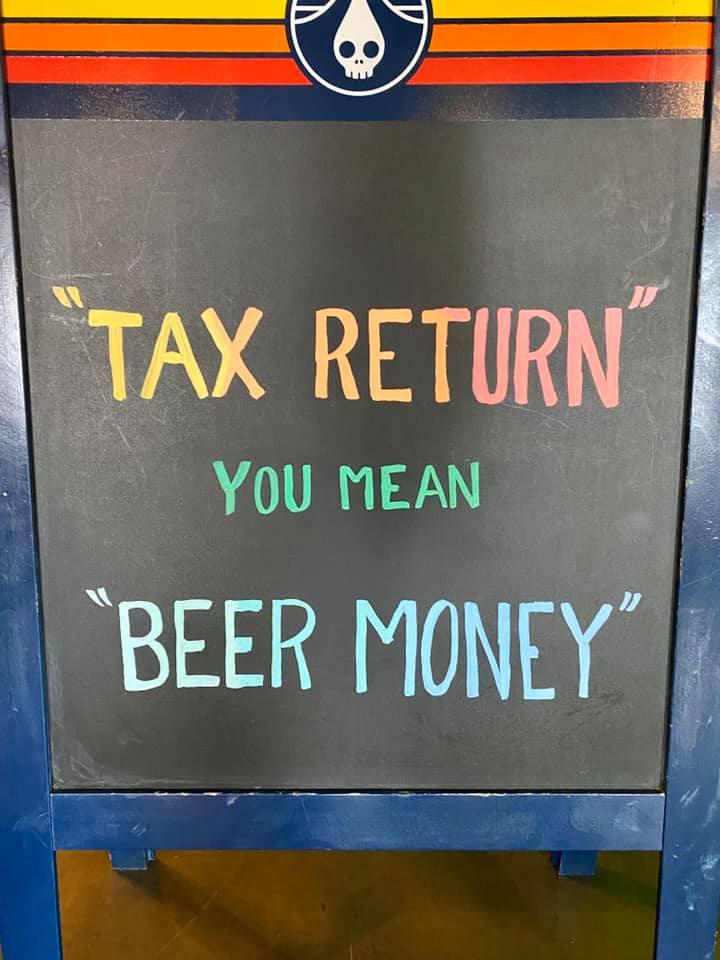 "TAX RETURN"
YOU MEAN
"BEER MONEY"